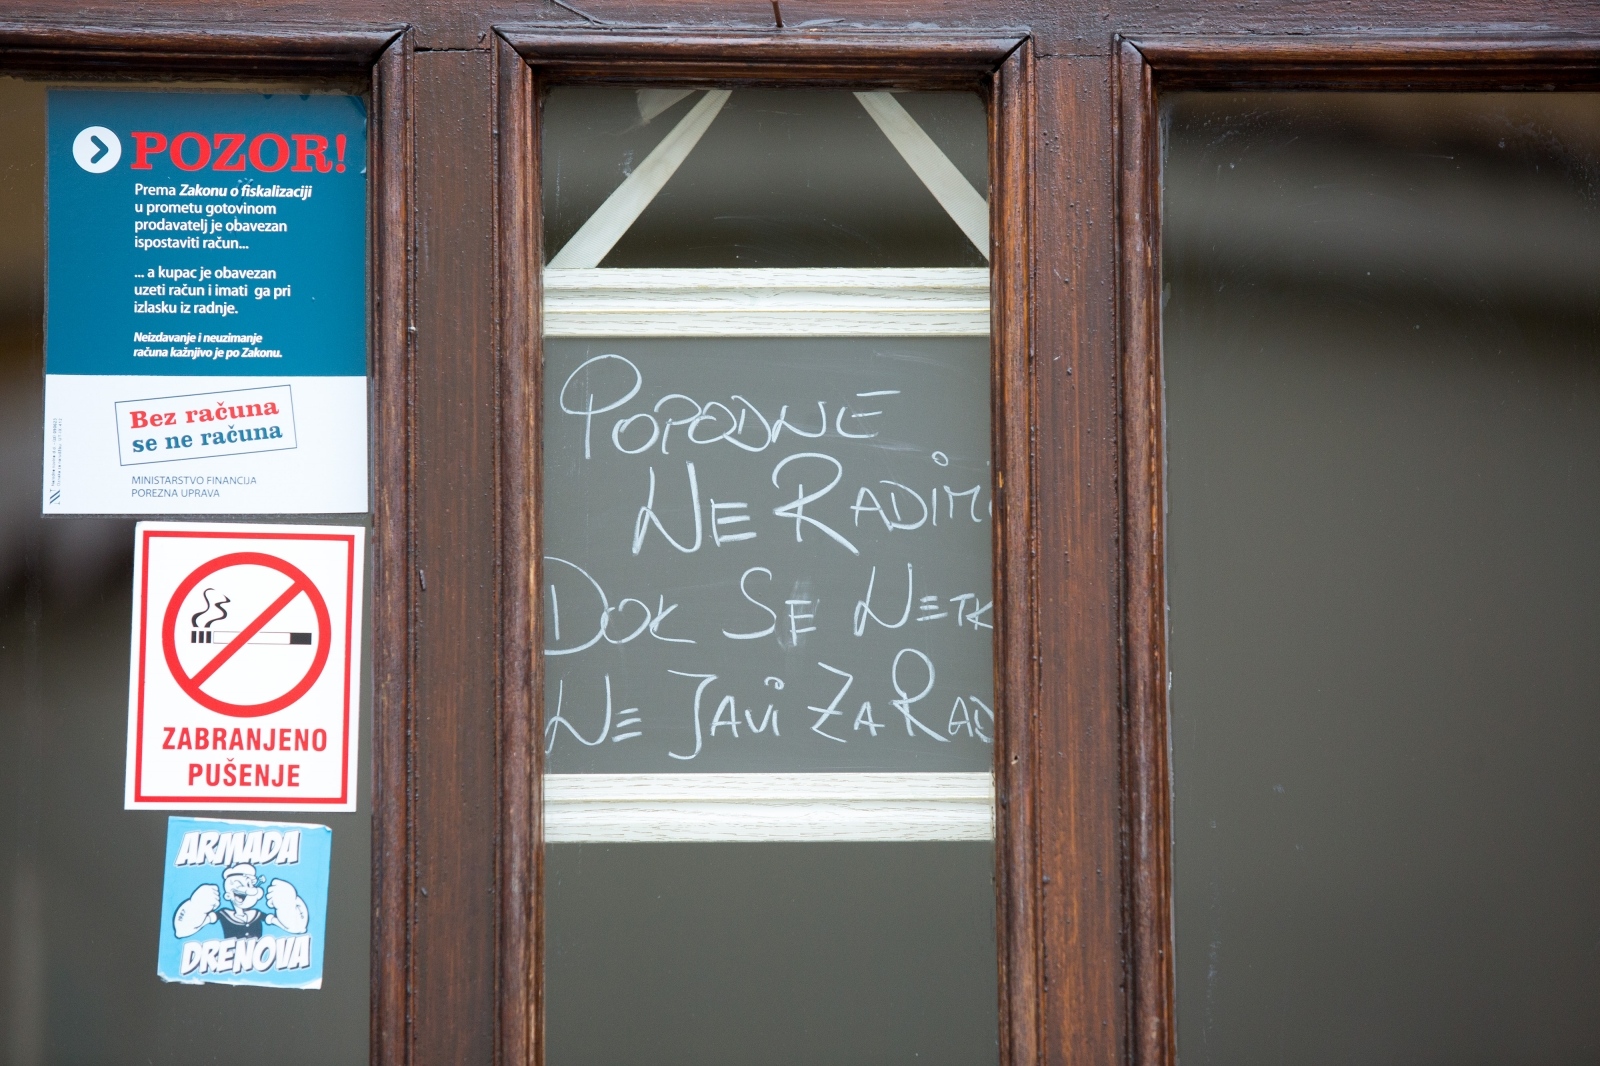 POZOR!
Prema Zakonu o fiskalizaciji
u prometu gotovinom
prodavatelj je obavezan
ispostaviti račun...
... a kupac je obavezan
uzeti račun i imati ga pri
izlasku iz radnje.
Neizdavanje i neuzimanje
računa kažnjivo je po Zakonu.
Bez računa
se ne računa
MINISTARSTVO FINANCIJA
POREZNA UPRAVA
ZABRANJENO
PUŠENJE
ARMADA
DRENOVA
POPODNE
NE RADIM
DOK SE NETK
NE JAVI ZA RAD